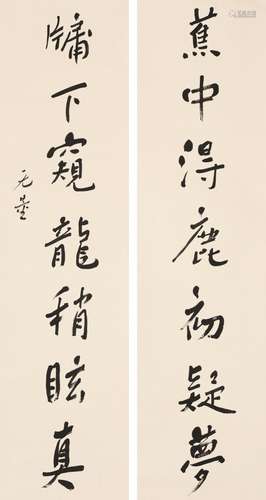 蕉中得鹿初疑夢
牖下窺龍稍眩真
无量